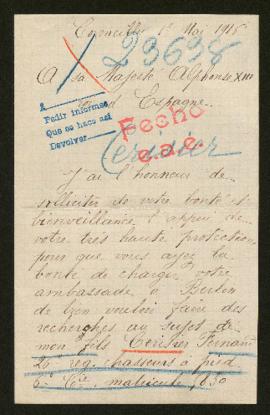 Corneilla 1 Mai 1916
23638
A sa Majesté Alphonse XIII
Roi d'Espagne
A
Pedir informes
Que se haga así
Devolver
Hecho
e.a.c.
Cerisier
J'ai l'honneur de
solliciter de votre bonté et
bienveillance l'appui de
votre très haute protection
pour que vous ayez la
bonté de charger votre
ambassade à Berlin
de bien vouloir faire des
recherches au sujet de
mon fils Cerisier Fernand
26 rég. chasseurs à pied
6e Cie matricule 1830